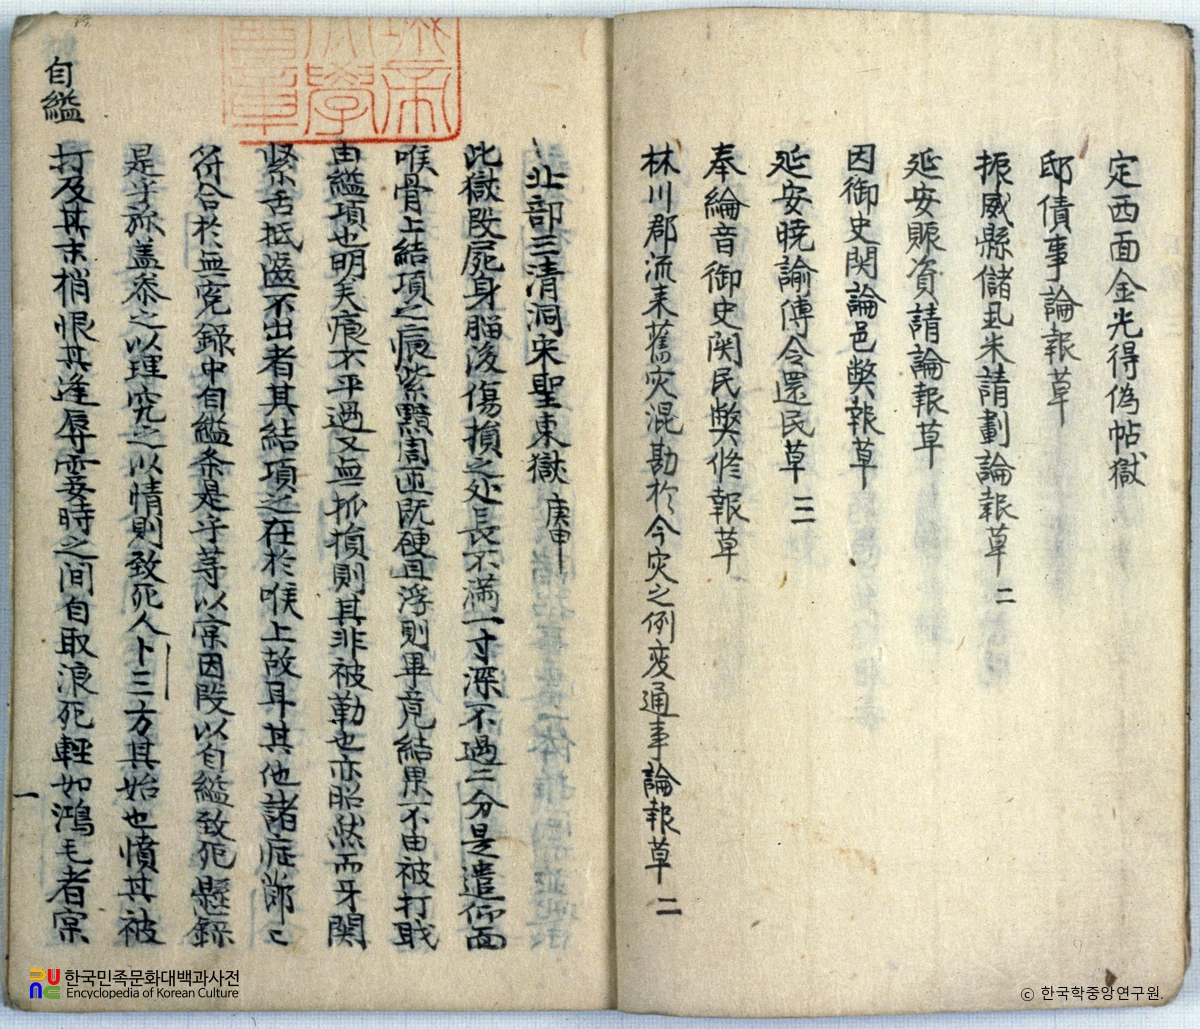 定西面金光得偽帖獄
邸債事論報草
振威縣儲置米請劃論報草 二
延安賑資請論報草
因御史関論邑弊報草
延安曉諭傳令還民草 三
奉綸音御史関民弊修報草
林川郡流来舊灾混勘於今灾之例変通事論報草 二
北部三清洞宋聖東獄 庚申
此獄段屍身腦後傷損之处長不滿一寸深不過二分是遣仰面
喉骨上結項之痕紫黯周匝既硬且浮則畢竟結果不由被打戝
由縊項也明矣痕不平過又無抓損則其非被勒也亦昭然而牙関
緊舌抵齒不出者其結項之在於喉上故耳其他諸症節〻
符合於無寃錄中自縊条是乎等以宲因段以自縊致死懸錄
是乎旀盖叅之以理究之以情則致死人卜三方其始也憤其被
打及其末梢恨其逢辱霎時之间自取浪死輕如鴻毛者宲
自縊
一
한국민족문화대백과사전
Encyclopedia of Korean Culture
ⓒ 한국학중앙연구원.